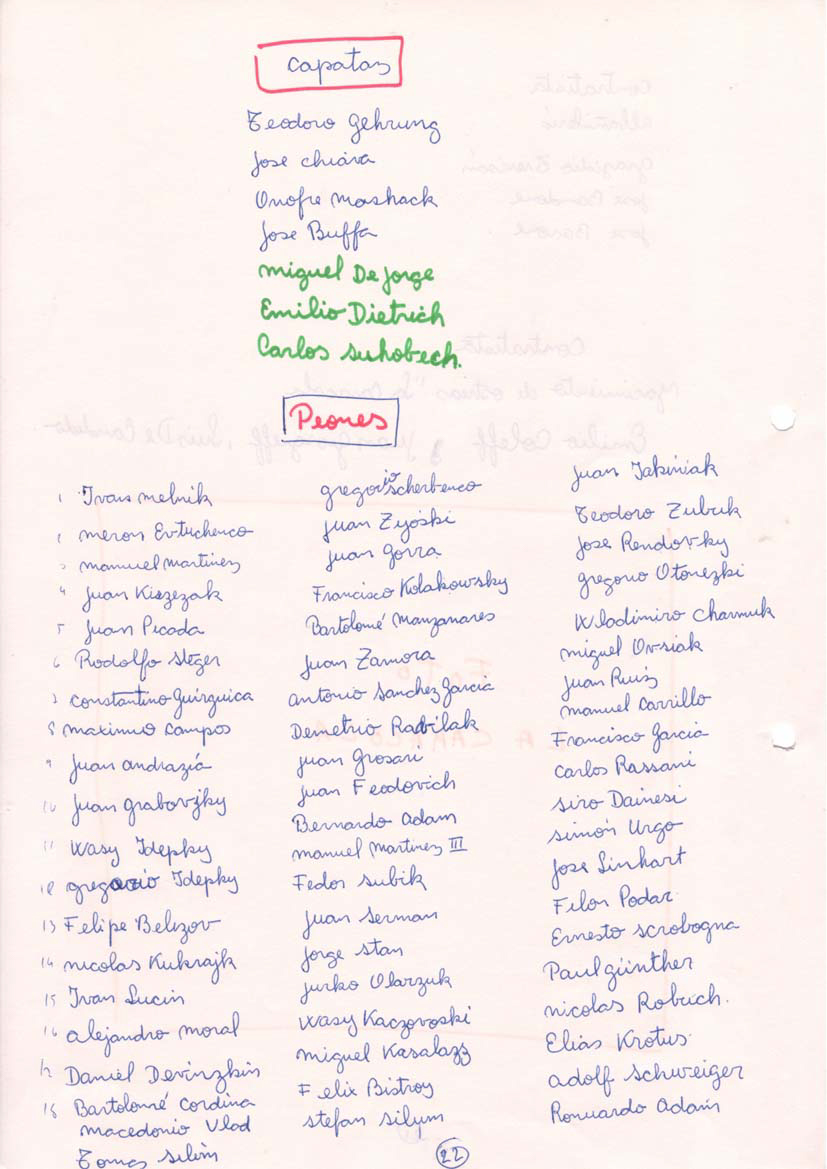 Capataz
Teodoro Gehrung
Jose Chiara
Onofre Mashack
Jose Buffa
Miguel De Jorge
Emilio Dietrich
Carlos Suhobech.
Peones
1 Ivan Melnik
2 Meron Evtuchenco
3 Manuel Martinez
4 Juan Kiszezak
5 Juan Picada
6 Rodolfo Steger
7 Constantino Guirguica
8 Maximino Campos
9 Juan Andrazia
10 Juan Grabovzky
11 Wasy Idepky
12 Gregorio Idepky
13 Felipe Belizov
14 Nicolas Kukrajk
15 Ivan Lucin
16 Alejandro Moral
17 Daniel Devinzkin
18 Bartolomé Cordina
Macedonio Vlad
Tomas Silim
Gregorio Scherbenco
Juan Zyoski
Juan Gorra
Francisco Kolakowsky
Bartolomé Manzanares
Juan Zamora
Antonio Sanchez Garcia
Demetrio Radilak
Juan Grosari
Juan Feodovich
Bernardo Adam
Manuel Martinez III
Fedor Subik
Juan Serman
Jorge Stan
Jurko Olarzuk
Wasy Kaczovoski
Miguel Kasalazz
Felix Bistroy
Stefan Silum
Juan Jakiniak
Teodoro Zubrik
Jose Rendovky
Gregorio Otonezki
Wladimiro Charnuk
Miguel Ovsiak
Juan Ruiz
Manuel Carrillo
Francisco Garcia
Carlos Rassani
Siro Dainesi
Simón Urgo
Jose Linhart
Filon Podar
Ernesto Scrobogna
Paul Günther
Nicolas Robuch.
Elias Krotus
Adolf Schweiger
Romuardo Adam
22